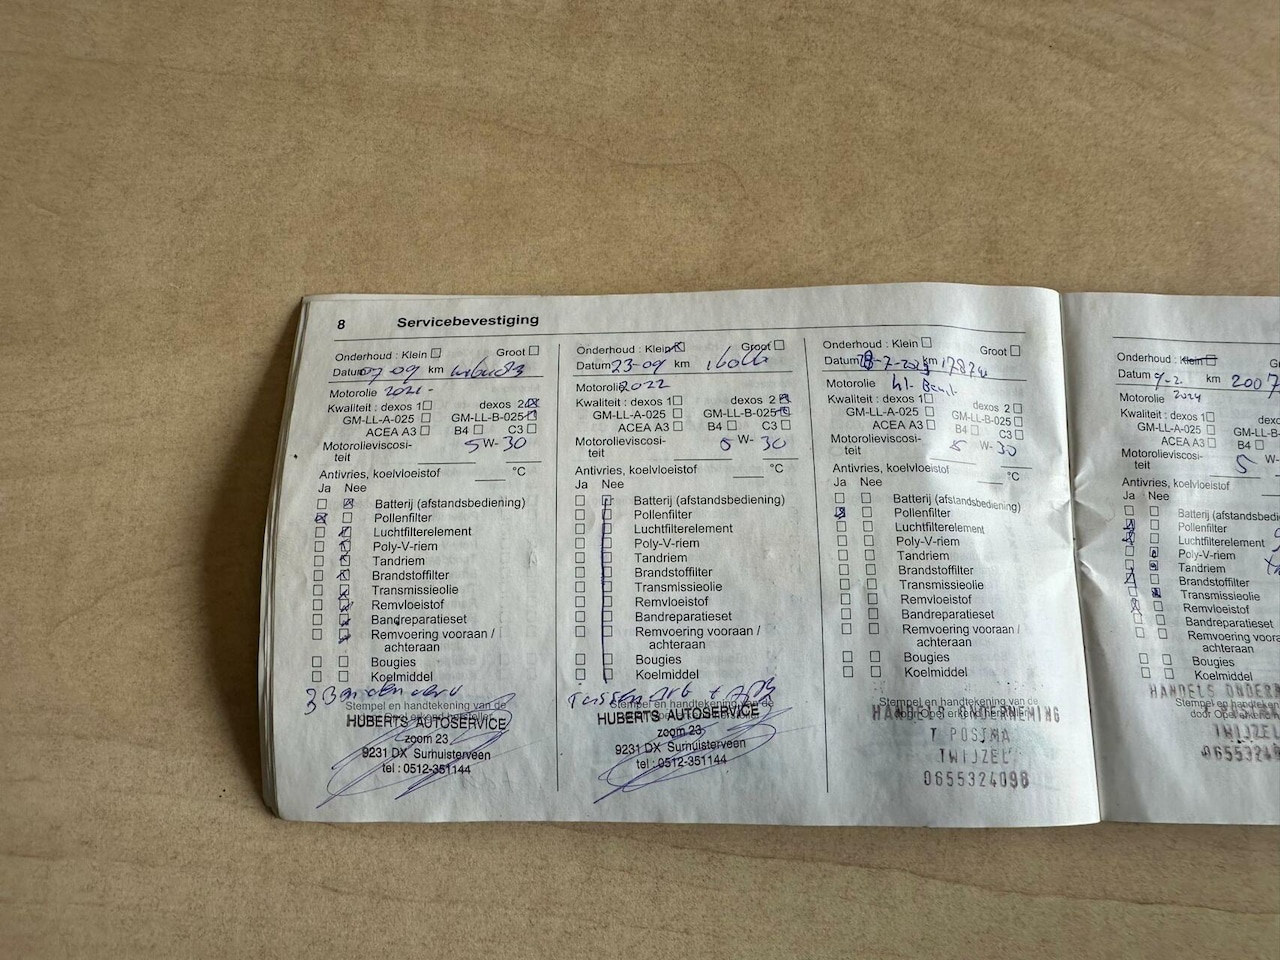 8 Servicebevestiging
Onderhoud : Klein ☐ Groot ☐
Datum 07-09 km
Motorolie 2021-
Kwaliteit : dexos 1 ☐ dexos 2 ☒
GM-LL-A-025 ☐ GM-LL-B-025 ☐
ACEA A3 ☐ B4 ☐ C3 ☐
Motorolieviscosi-
teit 5 W- 30
Antivries, koelvloeistof °C
Ja Nee
Batterij (afstandsbediening)
Pollenfilter
Luchtfilterelement
Poly-V-riem
Tandriem
Brandstoffilter
Transmissieolie
Remvloeistof
Bandreparatieset
Remvoering vooraan /
achteraan
Bougies
Koelmiddel
Stempel en handtekening van de
HUBERTS AUTOSERVICE
zoom 23
9231 DX Surhuisterveen
tel : 0512-351144
Onderhoud : Klein ☒ Groot ☐
Datum 23-09 km
Motorolie 2022
Kwaliteit : dexos 1 ☐ dexos 2 ☒
GM-LL-A-025 ☐ GM-LL-B-025 ☐
ACEA A3 ☐ B4 ☐ C3 ☐
Motorolieviscosi-
teit 5 W- 30
Antivries, koelvloeistof °C
Ja Nee
Batterij (afstandsbediening)
Pollenfilter
Luchtfilterelement
Poly-V-riem
Tandriem
Brandstoffilter
Transmissieolie
Remvloeistof
Bandreparatieset
Remvoering vooraan /
achteraan
Bougies
Koelmiddel
Stempel en handtekening van de
HUBERTS AUTOSERVICE
zoom 23
9231 DX Surhuisterveen
tel : 0512-351144
Onderhoud : Klein ☐ Groot ☐
Datum km
Motorolie
Kwaliteit : dexos 1 ☐ dexos 2 ☐
GM-LL-A-025 ☐ GM-LL-B-025 ☐
ACEA A3 ☐ B4 ☐ C3 ☐
Motorolieviscosi-
teit 5 W- 30
Antivries, koelvloeistof °C
Ja Nee
Batterij (afstandsbediening)
Pollenfilter
Luchtfilterelement
Poly-V-riem
Tandriem
Brandstoffilter
Transmissieolie
Remvloeistof
Bandreparatieset
Remvoering vooraan /
achteraan
Bougies
Koelmiddel
Stempel en handtekening van de
HANDELS ONDERNEMING
T POSTMA
TWIJZEL
0655324098
Onderhoud : Klein ☐
Datum 9-2 km 2007
Motorolie 2024
Kwaliteit : dexos 1 ☐
GM-LL-A-025 ☐ GM-LL-B
ACEA A3 ☐ B4 ☐
Motorolieviscosi-
teit 5 W-
Antivries, koelvloeistof
Ja Nee
Batterij (afstandsbedie
Pollenfilter
Luchtfilterelement
Poly-V-riem
Tandriem
Brandstoffilter
Transmissieolie
Remvloeistof
Bandreparatieset
Remvoering voora
achteraan
Bougies
Koelmiddel
HANDELS ONDER
Stempel en handteken
door Opel erkend
TWIJZEL